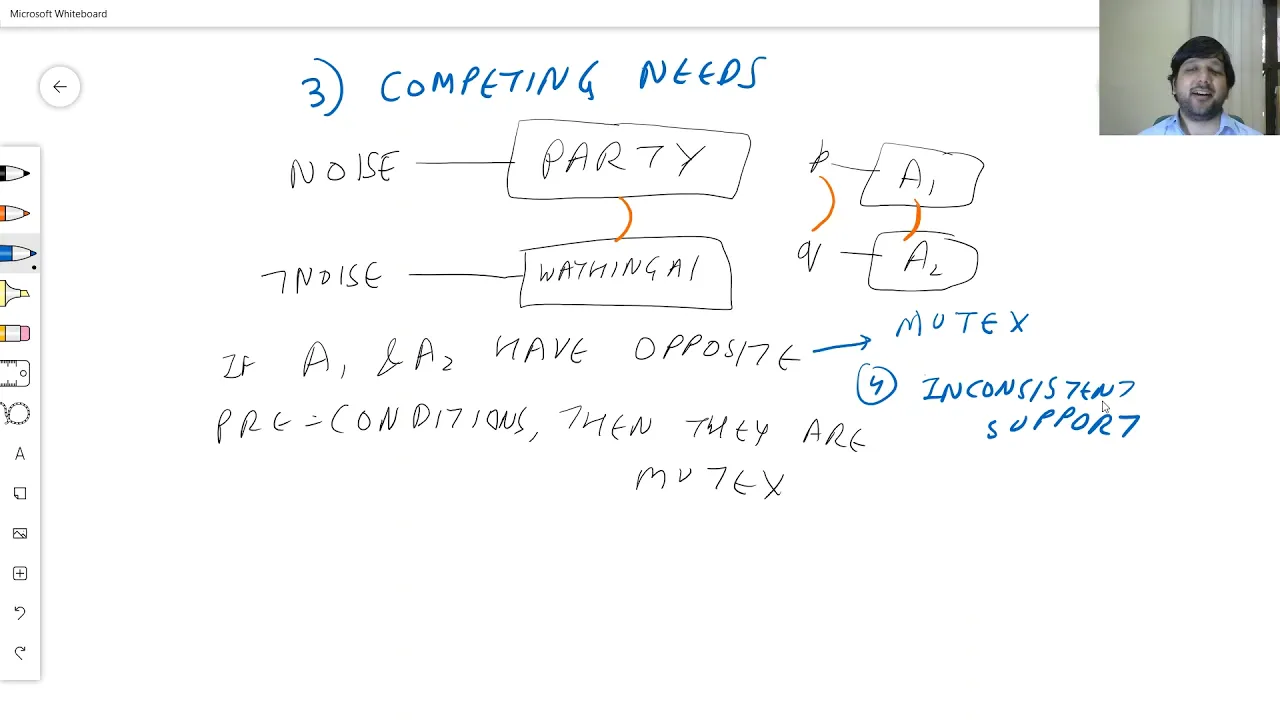 Microsoft Whiteboard
3) COMPETING NEEDS
NOISE PARTY
p A1
¬NOISE WATHING AI
q A2
MUTEX
IF A1 & A2 HAVE OPPOSITE →
④ INCONSISTENT
SUPPORT
PRE-CONDITIONS, THEN THEY ARE
MUTEX
A